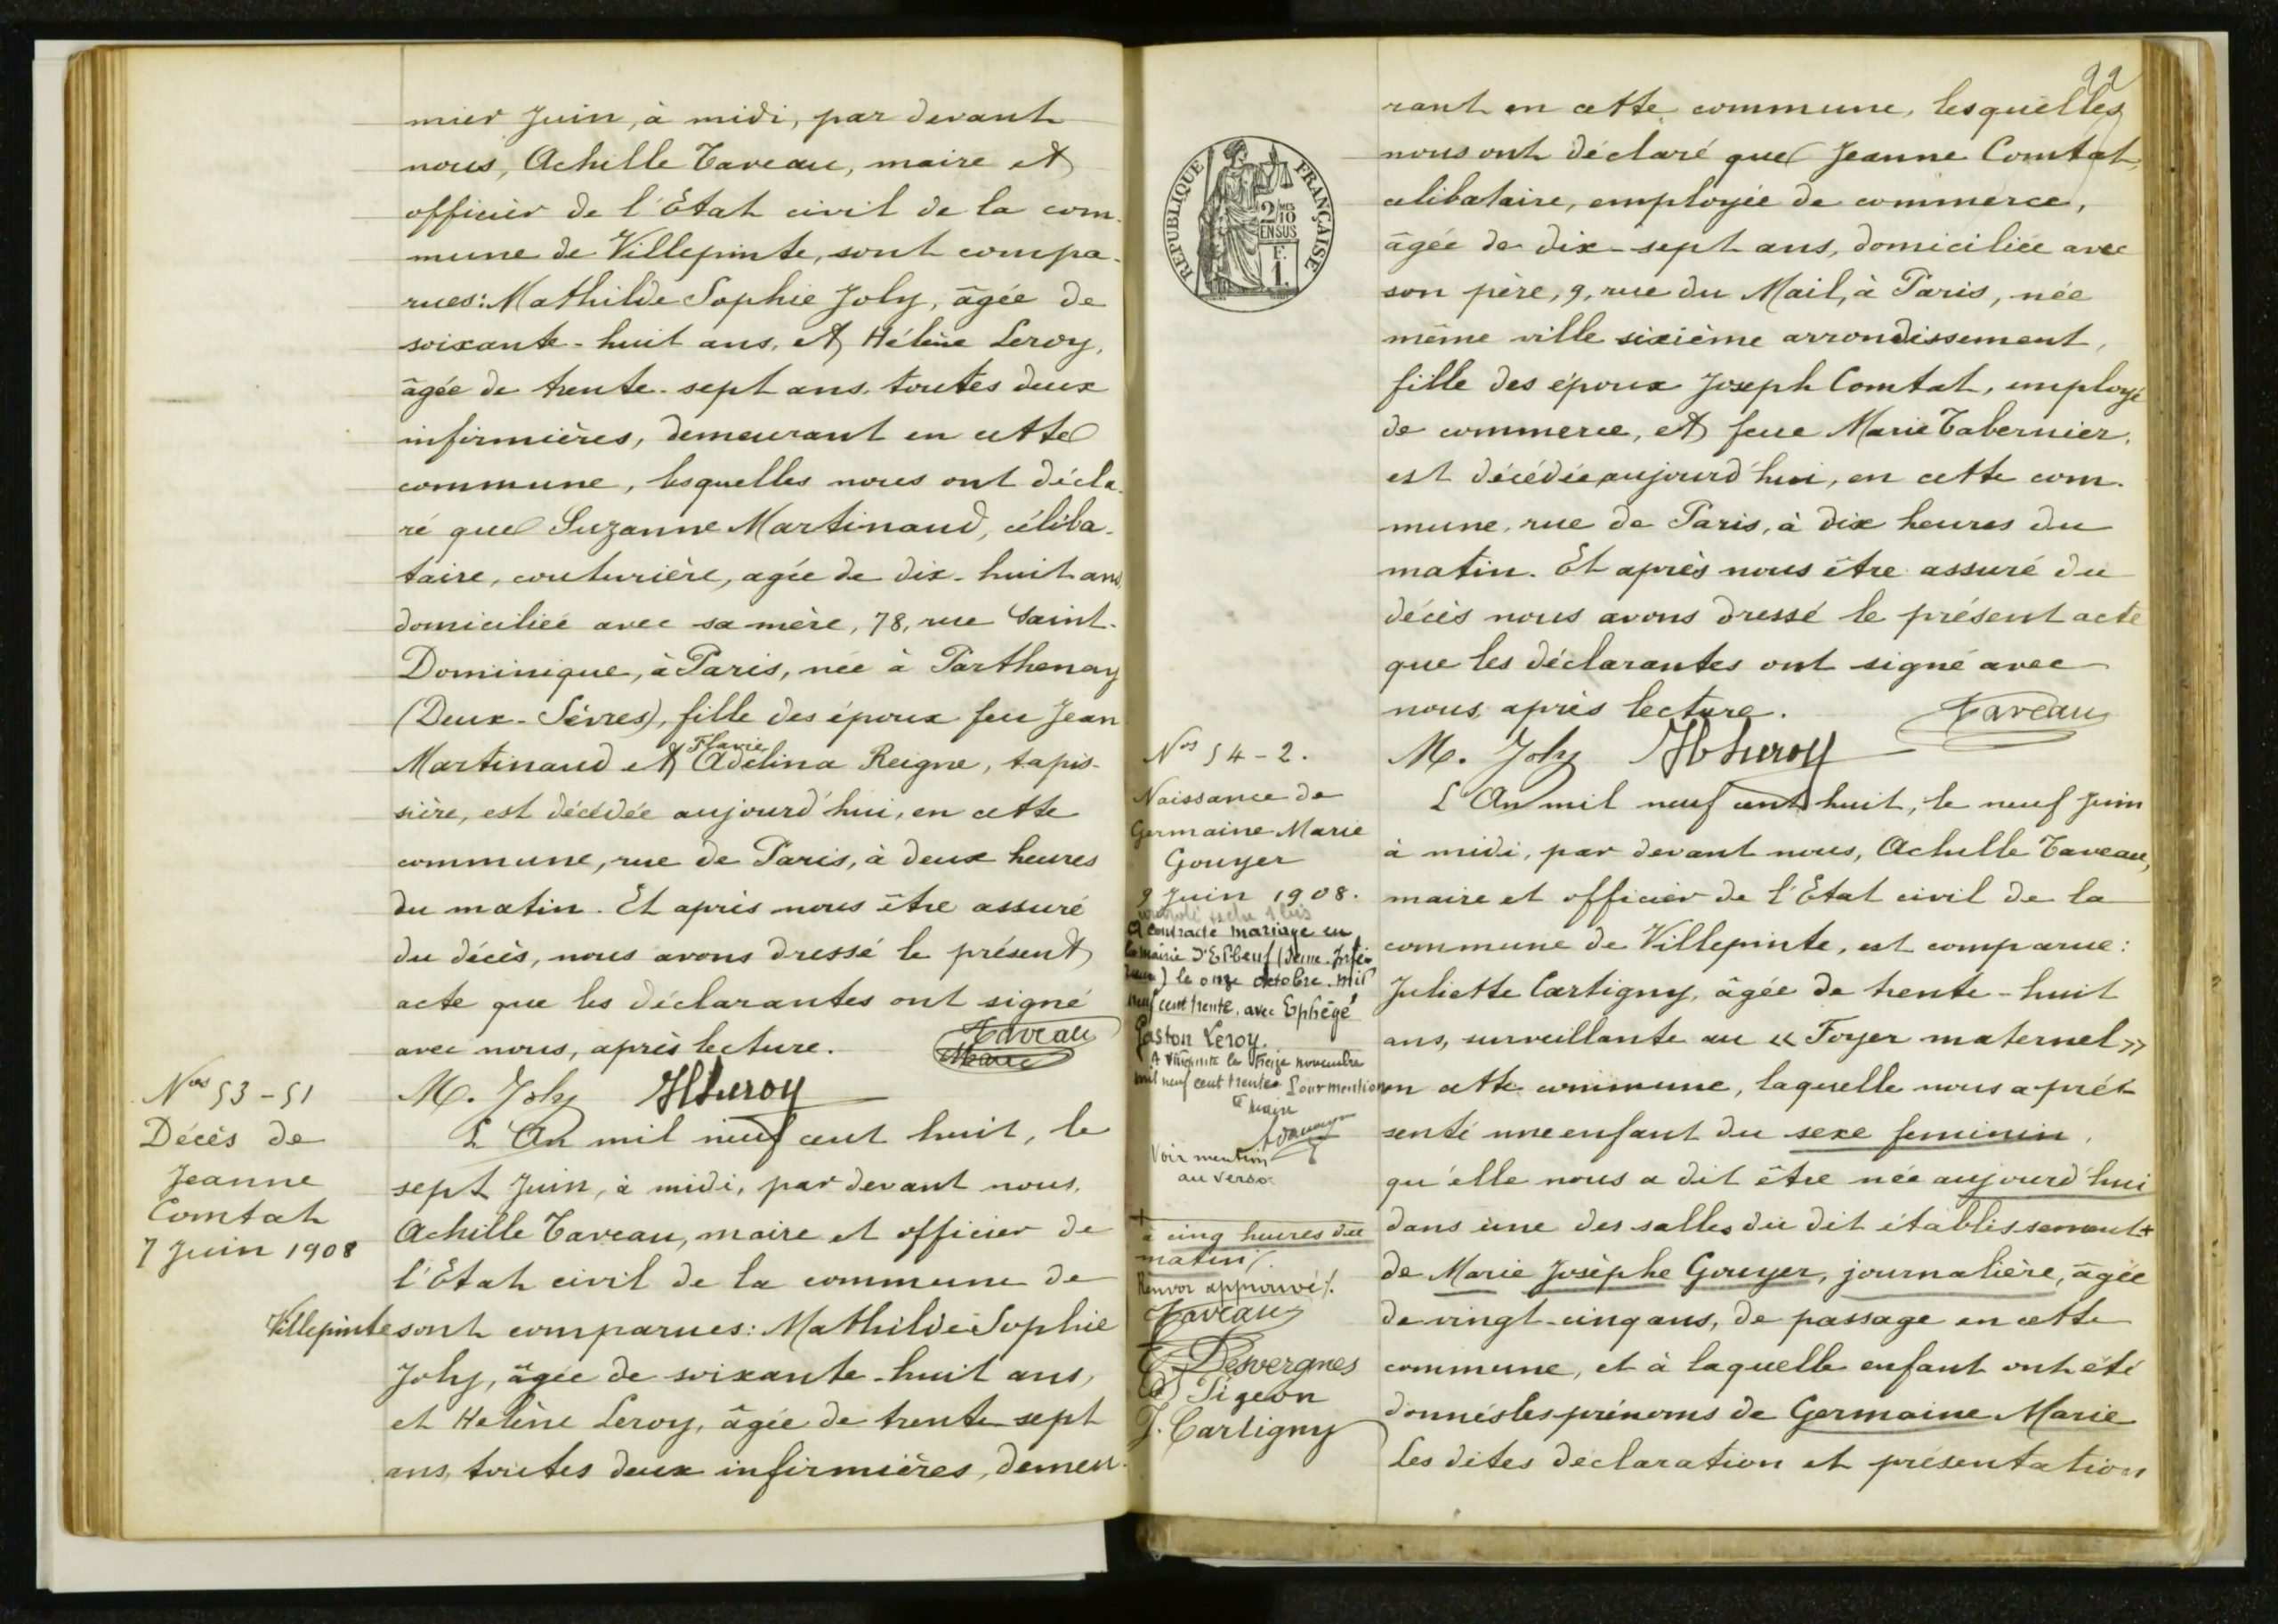 mier Juin, à midi, par devant
nous, Achille Taveau, maire et
officier de l'Etat civil de la com-
mune de Villepinte, sont compa-
rues: Mathilde Sophie Joly, âgée de
soixante-huit ans, et Hélène Leroy,
âgée de trente-sept ans, toutes deux
infirmières, demeurant en cette
commune, lesquelles nous ont décla-
ré que Suzanne Martinaud, céliba-
taire, couturière, agée de dix-huit ans,
domiciliée avec sa mère, 78, rue Saint-
Dominique, à Paris, née à Parthenay
(Deux-Sèvres), fille des époux feu Jean
Flavie
Martinaud et Adelina Reigne, tapis-
sière, est décédée aujourd'hui, en cette
commune, rue de Paris, à deux heures
du matin. Et après nous être assuré
du décès, nous avons dressé le présent
acte que les déclarantes ont signé
avec nous, après lecture.
Taveau
M. Joly HLeroy
Nos 53-51
Décès de
Jeanne
Comtat
7 Juin 1908
L'An mil neuf cent huit, le
sept Juin, à midi, par devant nous,
Achille Taveau, maire et officier de
l'Etat civil de la commune de
Villepinte sont comparues: Mathilde Sophie
Joly, âgée de soixante-huit ans,
et Helène Leroy, âgée de trente sept
ans, toutes deux infirmières, demeu-
22
REPUBLIQUE FRANÇAISE
2/10
EN SUS
F.
1.
rant en cette commune, lesquelles
nous ont déclaré que Jeanne Comtat,
celibataire, employée de commerce,
âgée de dix-sept ans, domiciliée avec
son père, 9, rue du Mail, à Paris, née
même ville sixième arrondissement,
fille des époux Joseph Comtat, employé
de commerce, et feue Marie Tabernier,
est décédée aujourd'hui, en cette com-
mune, rue de Paris, à dix heures du
matin. Et après nous être assuré du
décès nous avons dressé le présent acte
que les déclarantes ont signé avec
nous après lecture. Taveau
M. Joly HLeroy
Nos 54-2.
Naissance de
Germaine Marie
Gouyer
9 Juin 1908.
A contracté mariage en
la mairie d'Elbeuf (Seine-Infé-
rieure) le onze octobre mil
neuf cent trente, avec Ephégé
Gaston Leroy.
A Villepinte le treize novembre
mil neuf cent trente. Pour mention
Le maire
Voir mention
au verso
+
à cinq heures du
matin/.
Renvoi approuvé/.
Taveau
Desvergnes
Pigeon
J. Cartigny
L'An mil neuf cent huit, le neuf Juin
à midi, par devant nous, Achille Taveau,
maire et officier de l'Etat civil de la
commune de Villepinte, est comparue:
Juliette Cartigny, âgée de trente-huit
ans, surveillante au « Foyer maternel »
en cette commune, laquelle nous a pré-
senté une enfant du sexe feminin,
qu'elle nous a dit être née aujourd'hui
dans une des salles du dit établissement +
de Marie Josèphe Gouyer, journalière, âgée
de vingt-cinq ans, de passage en cette
commune, et à laquelle enfant ont été
donnés les prénoms de Germaine Marie
Les dites déclaration et présentation